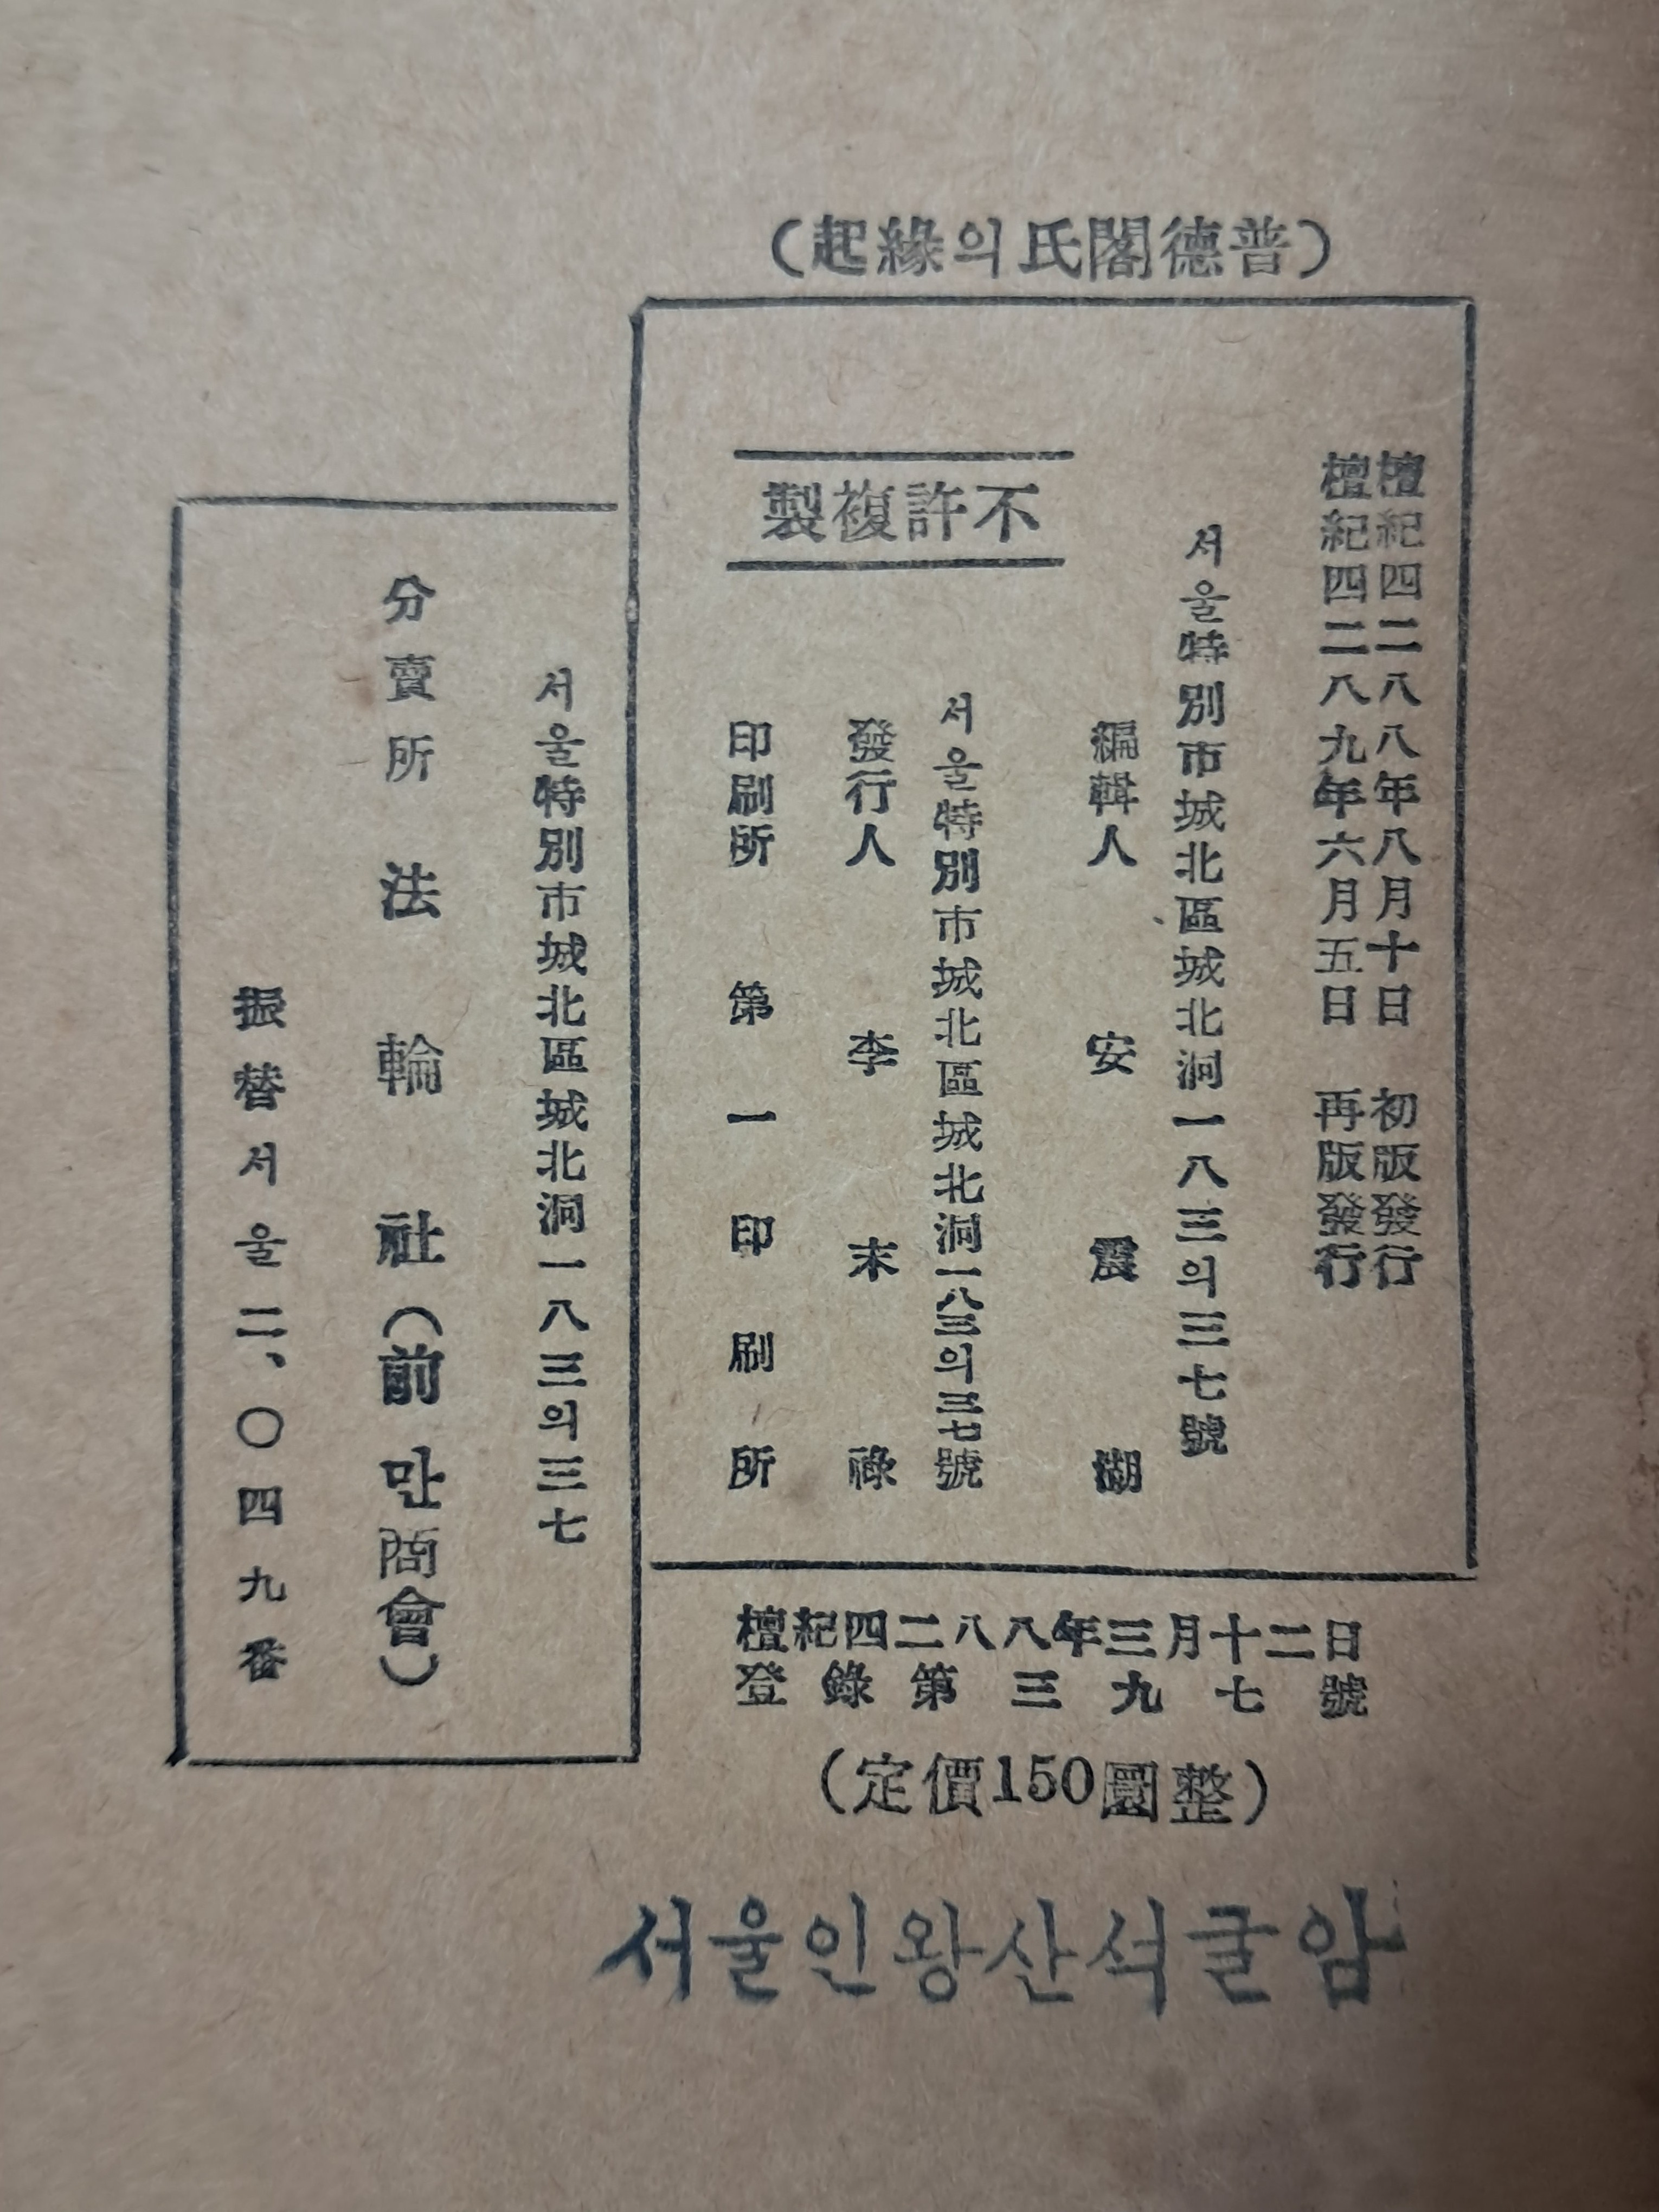 (普德閣氏의緣起)
檀紀四二八八年八月十日 初版發行
檀紀四二八九年六月五日 再版發行
서울特別市城北區城北洞一八三의三七號
編輯人 安震湖
서울特別市城北區城北洞一八三의三七號
發行人 李末祿
印刷所 第一印刷所
不許複製
서울特別市城北區城北洞一八三의三七
分賣所 法輪社(前만商會)
振替서울二、〇四九番
檀紀四二八八年三月十二日
登錄第三九七號
(定價150圜整)
서울인왕산석굴암